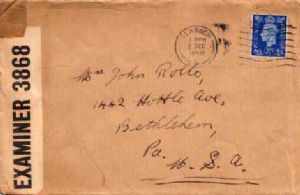 EXAMINER 3868
GLASGOW
DEC
Mrs John Rollo,
1442 Hottle Ave,
Bethlehem,
Pa.
U. S. A.